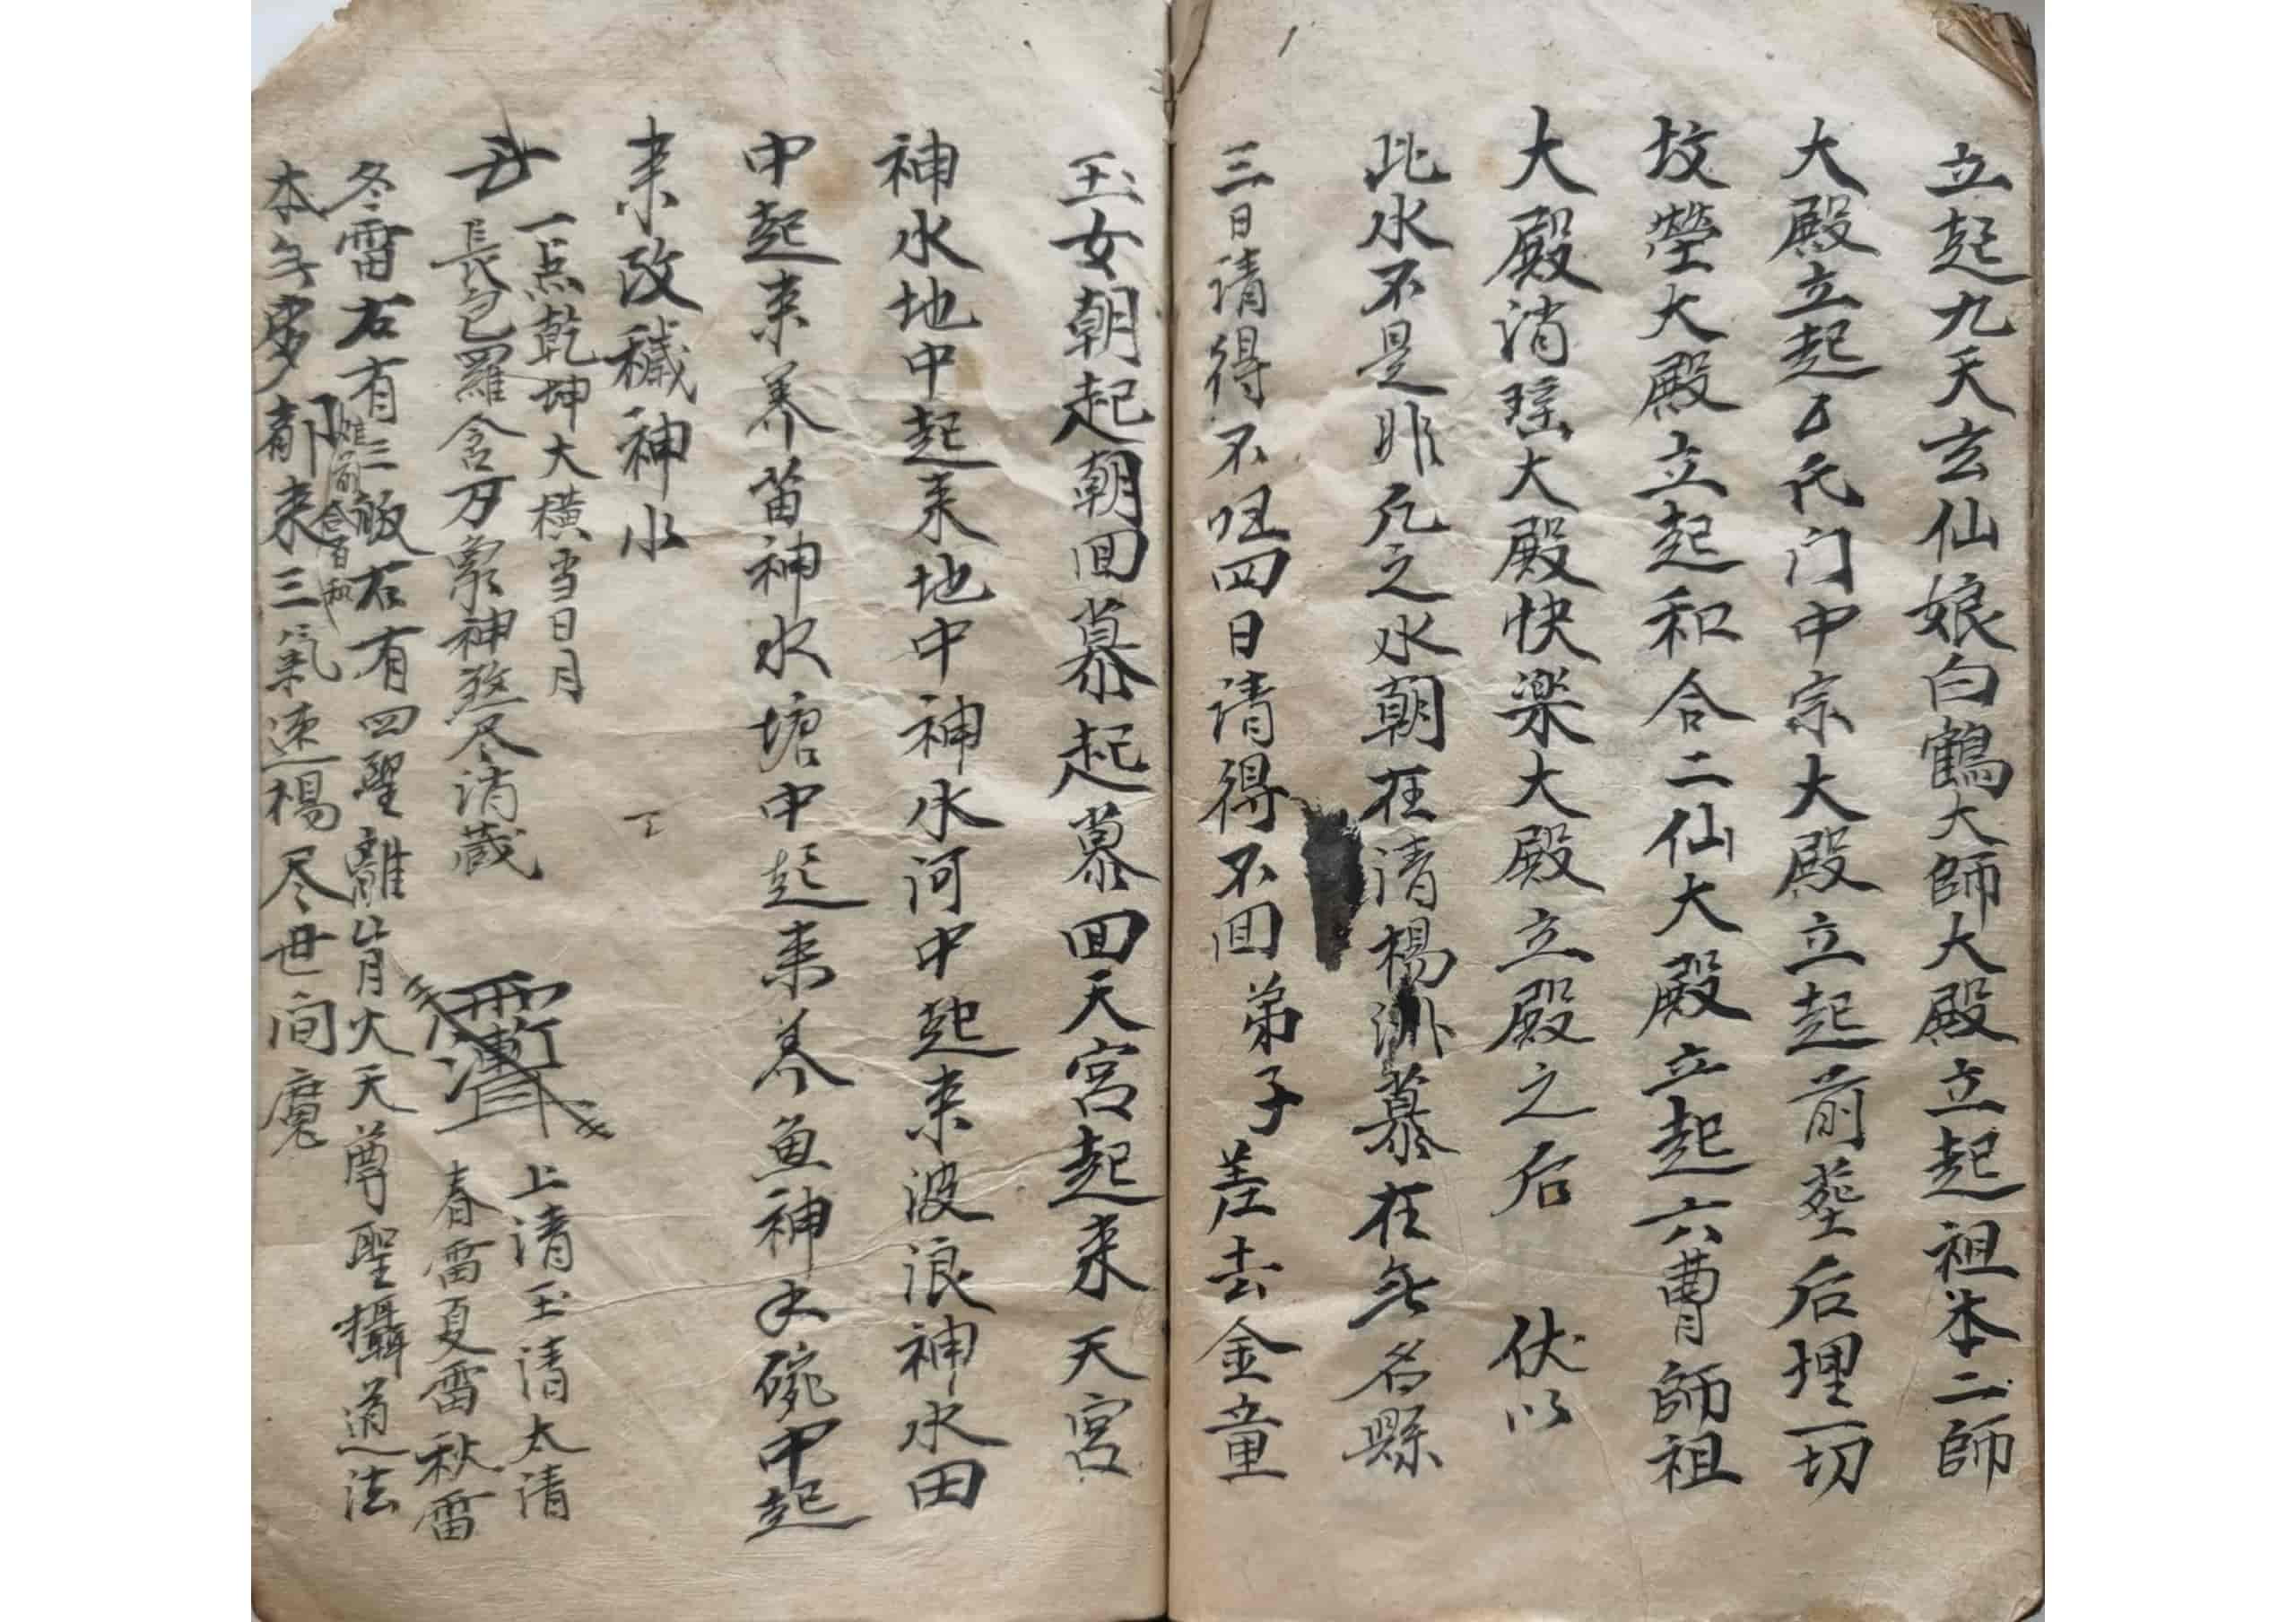 立起九天玄仙娘白鶴大師大殿立起祖本二師
大殿立起了氏门中宗大殿立起前塟后埋一切
坟塋大殿立起和合二仙大殿立起六曹師祖
大殿消瑶大殿快楽大殿立殿之后 伏以
此水不是非凡之水朝在清楊洲慕在無名縣
三日請得不回四日請得不回弟子差去金童
玉女朝起朝回慕起慕回天宮起来天宮
神水地中起来地中神水河中起来波浪神水田
中起来养苗神水塘中起来养魚神水碗中起
来改穢神水
一点乾坤大横当日月
長包羅含万象神煞尽消蔵
上清玉清太清
春雷夏雷秋雷
冬雷右有三級右有四聖離火天尊聖攝道法
本都来三氣速楊尽世间魔